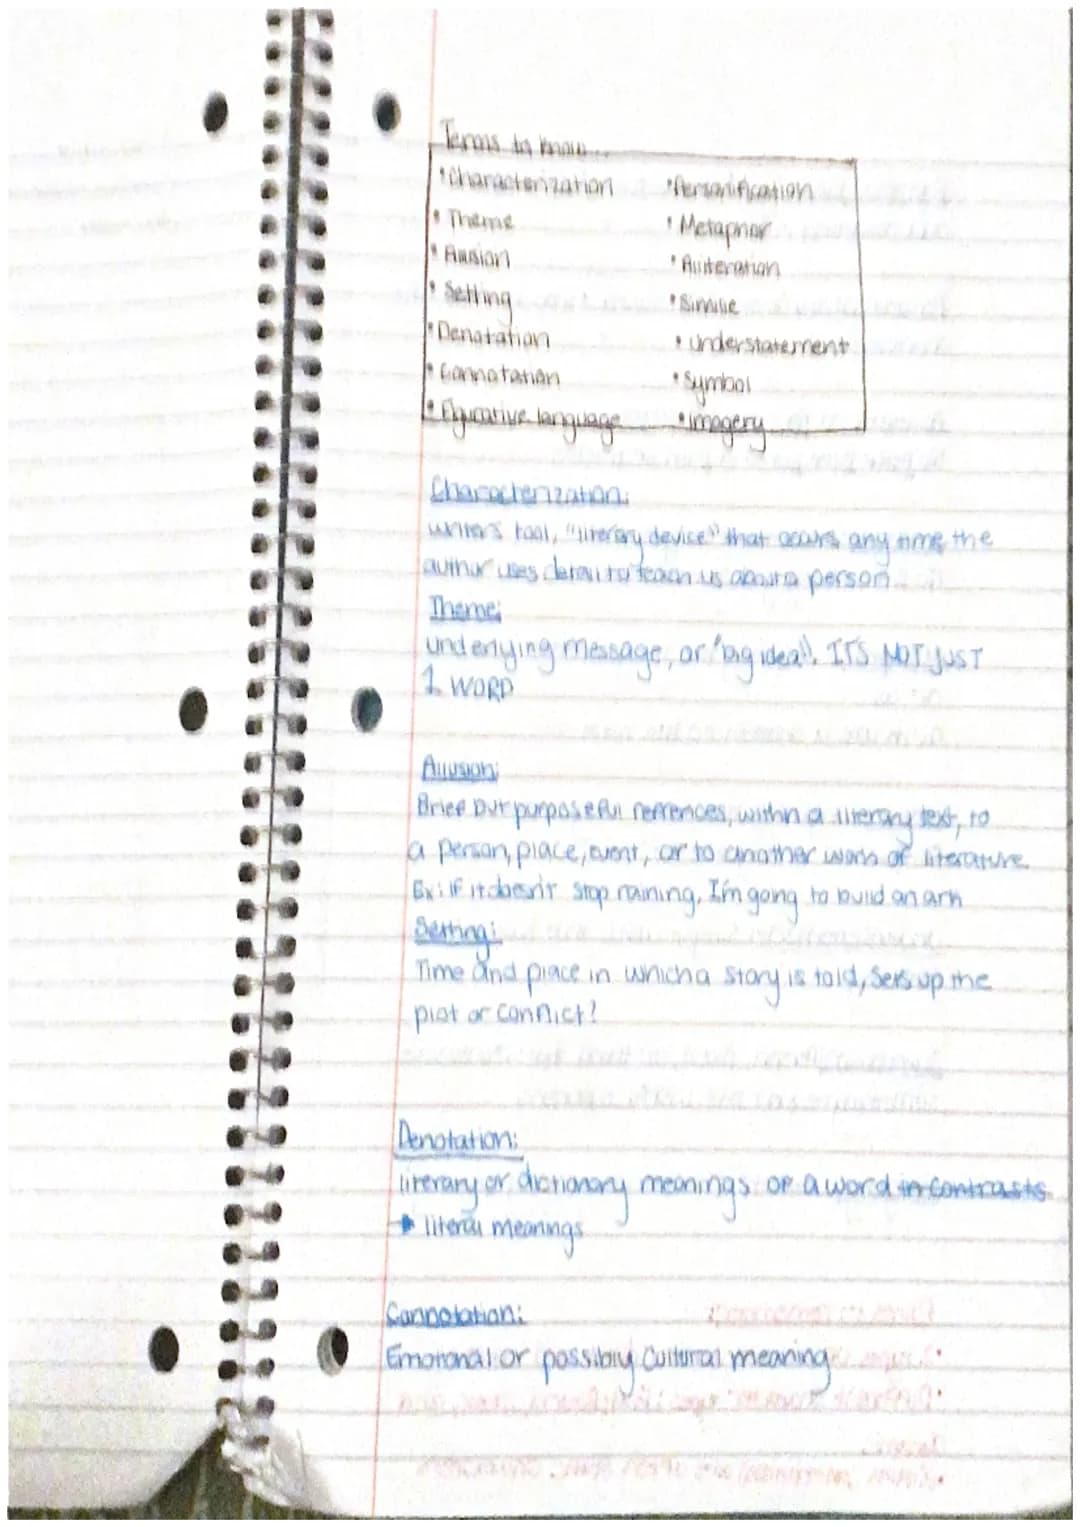 Terms to know...
• Characterization • Personification
• Theme • Metaphor
• Allusion • Alliteration
• Setting • Simile
• Denotation • understatement
• Connotation • Symbol
• Figurative language • Imagery
Characterization:
writers tool, "literary device" that occurs any time the
author uses detail to teach us about a person.
Theme:
underlying message, or "big idea". ITS NOT JUST
1 WORD
Allusion:
Brief but purposeful refrences, within a literary text, to
a person, place, event, or to another work of literature
Ex: if it doesn't stop raining, I'm going to build an ark
Setting:
Time and place in which a story is told, sets up the
plot or conflict!
Denotation:
literary or dictionary meanings of a word in contrasts
→ literal meanings
Connotation:
Emotional or possibly Cultural meaning